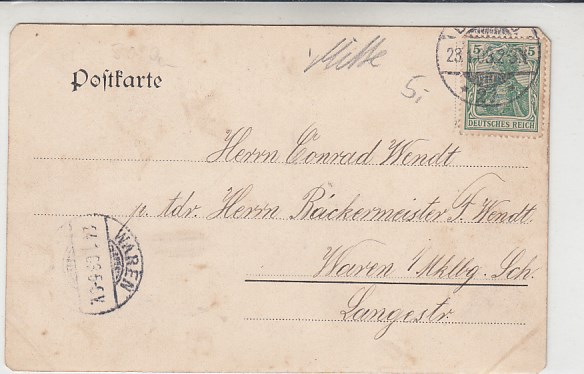 Postkarte
Mitte
5,-
5 5
DEUTSCHES REICH
23. 03. 2-3.V.
Herrn Conrad Wendt
p. adr. Herrn Bäckermeister F. Wendt.
Waren i/Mklbg. Sch.
Langestr.
WAREN